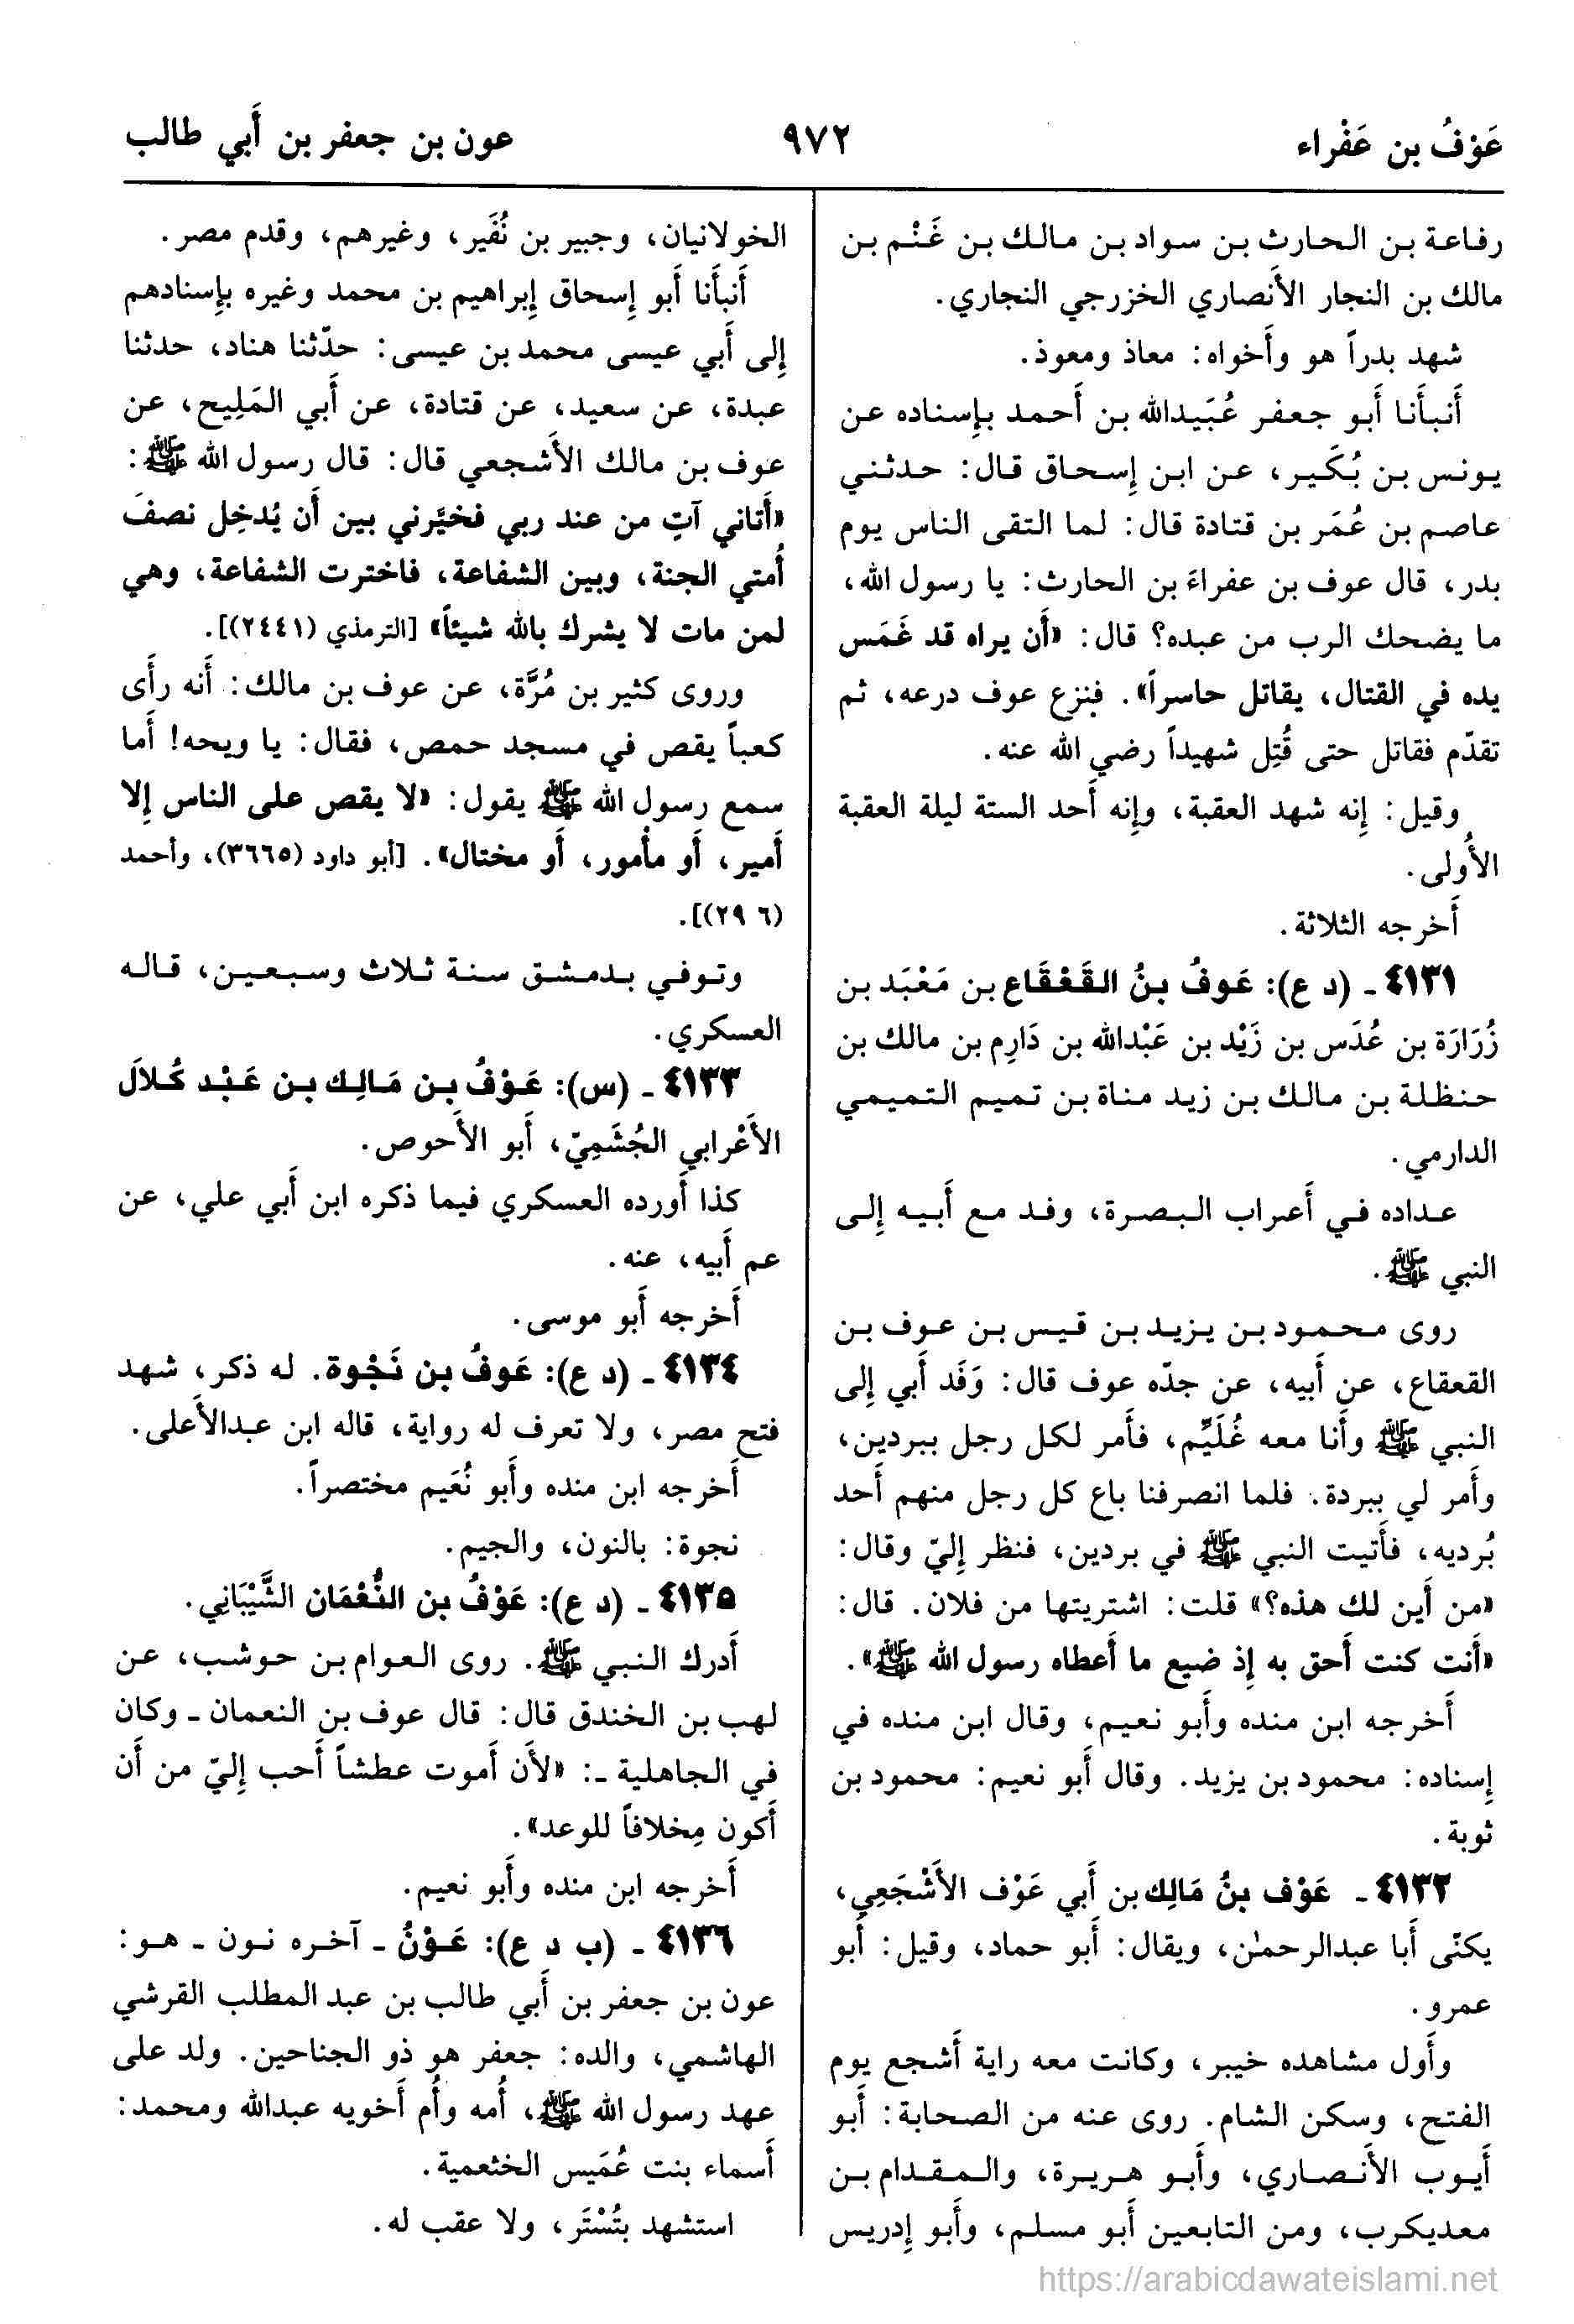 عَوْفُ بن عَفْراء
٩٧٢
عون بن جعفر بن أَبي طالب
رفاعة بن الحارث بن سواد بن مالك بن غَنْم بن
مالك بن النجار الأَنصاري الخزرجي النجاري.
شهد بدراً هو وأَخواه: معاذ ومعوذ.
أَنبأَنا أَبو جعفر عُبَيدالله بن أَحمد بإِسناده عن
يونس بن بُكَير، عن ابن إِسحاق قال: حدثني
عاصم بن عُمَر بن قتادة قال: لما التقى الناس يوم
بدر، قال عوف بن عفراءَ بن الحارث: يا رسول الله،
ما يضحك الرب من عبده؟ قال: «أَن يراه قد غَمَس
يده في القتال، يقاتل حاسراً». فنزع عوف درعه، ثم
تقدّم فقاتل حتى قُتِل شهيداً رضي الله عنه.
وقيل: إِنه شهد العقبة، وإِنه أَحد الستة ليلة العقبة
الأُولى.
أَخرجه الثلاثة.
٤١٣١ ـ (د ع): عَوفُ بنُ القَعْقَاع بن مَعْبَد بن
زُرَارَة بن عُدَس بن زَيْد بن عَبْدالله بن دَارِم بن مالك بن
حنظلة بن مالك بن زيد مناة بن تميم التميمي
الدارمي.
عداده في أَعراب البصرة، وفد مع أَبيه إِلى
النبي ﷺ.
روى محمود بن يزيد بن قيس بن عوف بن
القعقاع، عن أَبيه، عن جدّه عوف قال: وَفَد أَبي إِلى
النبي ﷺ وأَنا معه غُلَيِّم، فأَمر لكل رجل ببردين،
وأَمر لي ببردة. فلما انصرفنا باع كل رجل منهم أَحد
بُرديه، فأَتيت النبي ﷺ في بردين، فنظر إِليّ وقال:
«من أَين لك هذه؟» قلت: اشتريتها من فلان. قال:
«أَنت كنت أَحق به إِذ ضيع ما أَعطاه رسول الله ﷺ».
أَخرجه ابن منده وأَبو نعيم، وقال ابن منده في
إِسناده: محمود بن يزيد. وقال أَبو نعيم: محمود بن
ثوبة.
٤١٣٢ ـ عَوْف بنُ مَالِك بن أَبي عَوْف الأَشْجَعِي،
يكنّى أَبا عبدالرحمٰن، ويقال: أَبو حماد، وقيل: أَبو
عمرو.
وأَول مشاهده خيبر، وكانت معه راية أَشجع يوم
الفتح، وسكن الشام. روى عنه من الصحابة: أَبو
أَيوب الأَنصاري، وأَبو هريرة، والمقدام بن
معديكرب، ومن التابعين أَبو مسلم، وأَبو إِدريس
الخولانيان، وجبير بن نُفَير، وغيرهم، وقدم مصر.
أَنبأَنا أَبو إِسحاق إِبراهيم بن محمد وغيره بإِسنادهم
إِلى أَبي عيسى محمد بن عيسى: حدّثنا هناد، حدثنا
عبدة، عن سعيد، عن قتادة، عن أَبي المَلِيح، عن
عوف بن مالك الأَشجعي قال: قال رسول الله ﷺ:
«أَتاني آتٍ من عند ربي فخيَّرني بين أَن يُدخِل نصفَ
أُمتي الجنة، وبين الشفاعة، فاخترت الشفاعة، وهي
لمن مات لا يشرك بالله شيئاً» [الترمذي (٢٤٤١)].
وروى كثير بن مُرَّة، عن عوف بن مالك: أَنه رأَى
كعباً يقص في مسجد حمص، فقال: يا ويحه! أَما
سمع رسول الله ﷺ يقول: «لا يقص على الناس إِلا
أَمير، أَو مأْمور، أَو مختال». [أبو داود (٣٦٦٥)، وأحمد
(٦ ٢٩)].
وتوفي بدمشق سنة ثلاث وسبعين، قاله
العسكري.
٤١٣٣ ـ (س): عَوْفُ بن مَالِك بن عَبْد كُلاَل
الأَعْرابي الجُشَمِيّ، أَبو الأَحوص.
كذا أَورده العسكري فيما ذكره ابن أَبي علي، عن
عم أَبيه، عنه.
أَخرجه أَبو موسى.
٤١٣٤ ـ (د ع): عَوفُ بن نَجْوة. له ذكر، شهد
فتح مصر، ولا تعرف له رواية، قاله ابن عبدالأَعلى.
أَخرجه ابن منده وأَبو نُعَيم مختصراً.
نجوة: بالنون، والجيم.
٤١٣٥ ـ (د ع): عَوْفُ بن النُّعْمَان الشَّيْبَانِي.
أَدرك النبي ﷺ. روى العوام بن حوشب، عن
لهب بن الخندق قال: قال عوف بن النعمان ـ وكان
في الجاهلية ـ: «لأَن أَموت عطشاً أَحب إِليّ من أَن
أَكون مِخلافاً للوعد».
أَخرجه ابن منده وأَبو نعيم.
٤١٣٦ ـ (ب د ع): عَوْنُ ـ آخره نون ـ هو:
عون بن جعفر بن أَبي طالب بن عبد المطلب القرشي
الهاشمي، والده: جعفر هو ذو الجناحين. ولد على
عهد رسول الله ﷺ، أُمه وأُم أَخويه عبدالله ومحمد:
أَسماء بنت عُمَيس الخثعمية.
استشهد بتُسْتَر، ولا عقب له.
https://arabicdawateislami.net